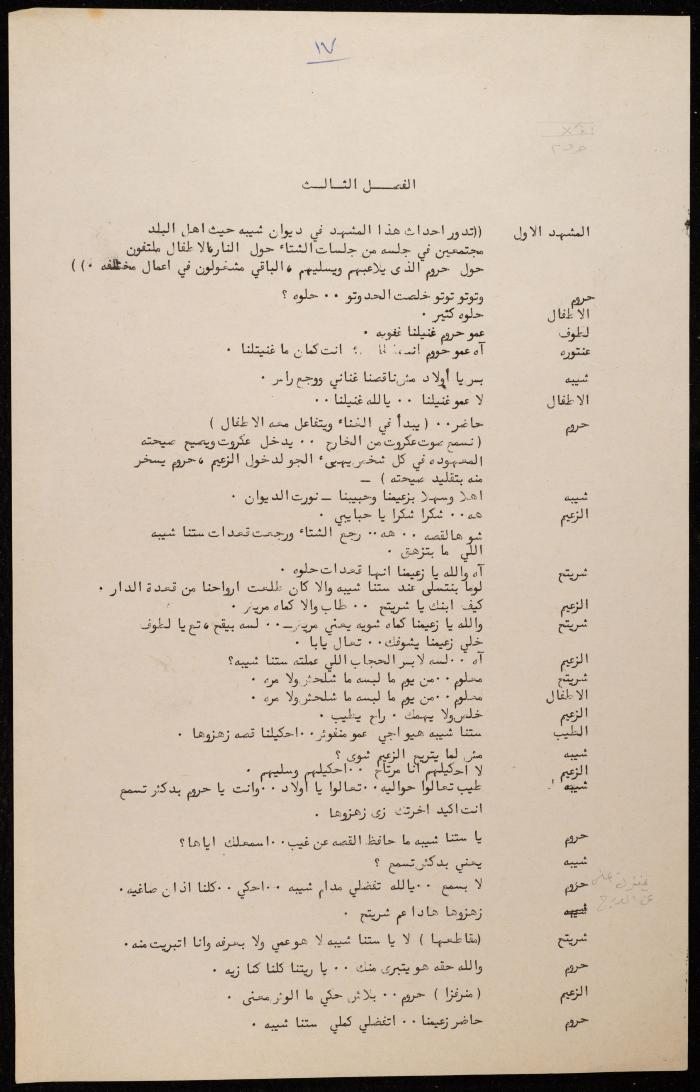 ١٧
الفصل الثالث
المشهد الاول ((تدور احداث هذا المشهد في ديوان شيبه حيث اهل البلد
مجتمعين في جلسه من جلسات الشتاء حول النار والاطفال ملتفون
حول حروم الذى يلاعبهم ويسليهم ،الباقي مشغولون في اعمال مختلفه ٠))
حروم وتوتو توتو خلصت الحدوتو ٠٠ حلوه ؟
الاطفال حلوه كثير ٠
لطوف عمو حروم غنيلنا غفويه ٠
عنتوره آه عمو حروم انت كمان ما غنيتلنا ٠
شيبه بس يا أولاد مش ناقصنا غناني ووجع راس ٠
الاطفال لا عمو غنيلنا ٠٠ يالله غنيلنا ٠٠
حروم حاضر ٠٠ ( يبدأ في الغناء ويتفاعل معه الاطفال )
( نسمع صوت عكروت من الخارج ٠٠ يدخل عكروت ويصيح صيحته
المعهوده في كل شخص يهيىء الجو لدخول الزعيم ،حروم يسخر
منه بتقليد صيحته ) ــ
شيبه اهلا وسهلا بزعيمنا وحبيبنا ــ نورت الديوان ٠
الزعيم هه ٠٠ شكرا شكرا يا حبايبي ٠
شو هالقصه ٠٠ هه ٠٠ رجع الشتاء ورجعت قعدات ستنا شيبه
اللي ما بتزهق ٠
شريتح آه والله يا زعيمنا انها قعدات حلوه ٠
لوما بنتسلى عند ستنا شيبه والا كان طلعت ارواحنا من قعدة الدار ٠
الزعيم كيف ابنك يا شريتح ٠٠ طاب والا كماه مريض ٠
شريتح والله يا زعيمنا كماه شويه يعني مريض ــ ٠٠ لسه بيقح ،تع يا لطوف
خلي زعيمنا يشوفك ٠٠ تعال يابا ٠
الزعيم آه ٠٠ لسه لابس الحجاب اللي عملته ستنا شيبه؟
شريتح معلوم ٠٠ من يوم ما لبسه ما شلحش ولا مره ٠
الاطفال معلوم ٠٠ من يوم ما لبسه ما شلحش ولا مره ٠
الزعيم خلص ولا يهمك ٠ راح يطيب ٠
الطيب ستنا شيبه هيو اجي عمو منفوش ٠٠ احكيلنا قصه زهزوها ٠
شيبه مش لما يتريح الزعيم شوى ؟
الزعيم لا احكيلهم انا مرتاح ٠٠ احكيلهم وسليهم ٠
شيبه طيب تعالوا حواليه ٠٠ تعالوا يا اولاد ٠٠ وانت يا حروم بدكش تسمع
انت اكيد اخرتك زى زهزوها ٠
حروم يا ستنا شيبه ما حافظ القصه عن غيب ٠٠ اسمعلك اياها؟
شيبه يعني بدكش تسمع ؟
حروم لا بسمع ٠٠ يالله تفضلي مدام شيبه ٠٠ احكي ٠٠ كلنا اذان صاغيه ٠
شيبه زهزوها هادا عم شريتح ٠
شريتح (مقاطعها ) لا يا ستنا شيبه لا هو عمي ولا بعرفه وانا اتبريت منه ٠
حروم والله حقه هو يتبرى منك ٠٠ يا ريتنا كلنا كنا زيه ٠
الزعيم ( منرفزا ) حروم ٠٠ بلاش حكي ما الوش معنى ٠
حروم حاضر زعيمنا ٠٠ اتفضلي كملي ستنا شيبه ٠